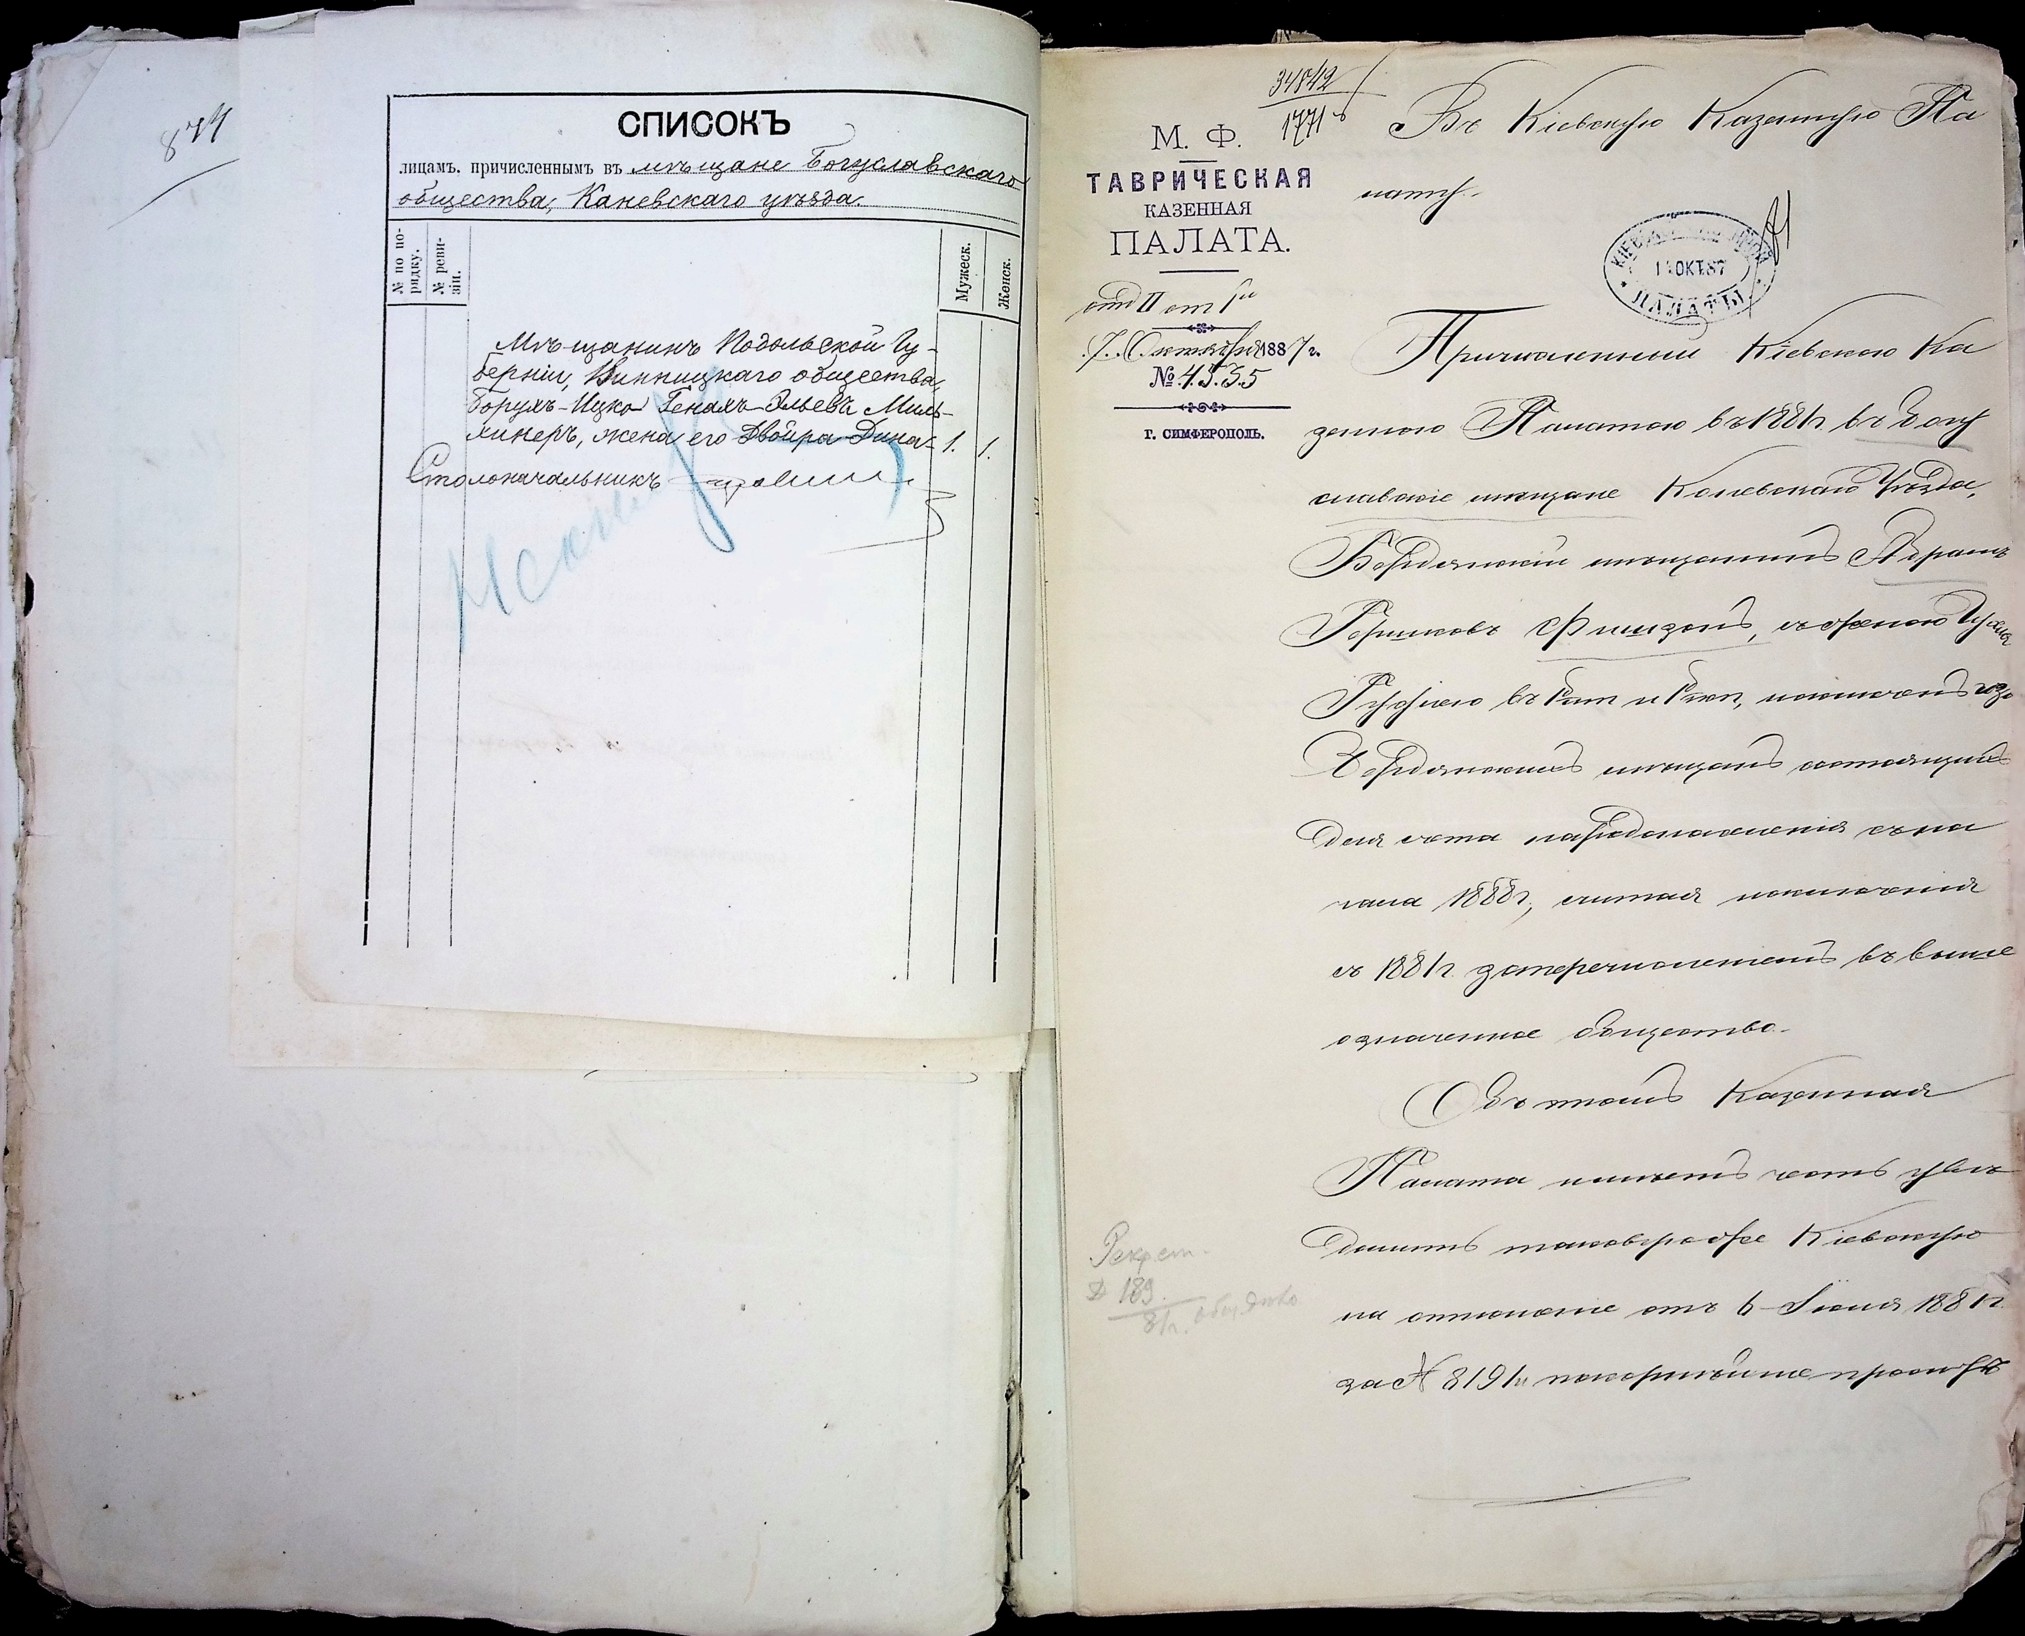 874
СПИСОКЪ
лицамъ. причисленнымъ въ мѣщане Богуславскаго
общества, Каневскаго уѣзда.
№ по по-
рядку.
№ реви-
зіи.
Мужеск.
Женск.
Мѣщанинъ Подольской Гу-
берніи, Винницкаго общества,
Борухъ-Ицко Генахъ-Эльевъ Миль-
хинеръ, жена его Двойра-Дина - 1. 1.
Столоначальникъ
34842
1771
М. Ф.
ТАВРИЧЕСКАЯ
КАЗЕННАЯ
ПАЛАТА.
отд II ст 1й
7 Октября 1887 г.
№ 4535
Г. СИМФЕРОПОЛЬ.
Въ Кіевскую Казенную Па
лату.
ОКТ.87
ПАЛАТЫ
Причисленный Кіевскою Ка
зенною Палатою въ 1881 г. въ Богу
славскіе мѣщане Каневскаго Уѣзда,
Бердянскій мѣщанинъ Абрамъ
Гершковъ Фишзонъ, съ женою
въ и исключенъ изъ
Бердянскихъ мѣщанъ состоящихъ
для счета народонаселенія съ на
чала 1888 г., считая исключенія
съ 1881 г. за перечисленіемъ въ выше
означенное общество.
Объ этомъ Казенная
Палата имѣетъ честь увѣ
домить таковую же Кіевскую
на отношеніе отъ 6 Іюня 1881 г.
за № 8191 покорнѣйше прося
189
81 г.